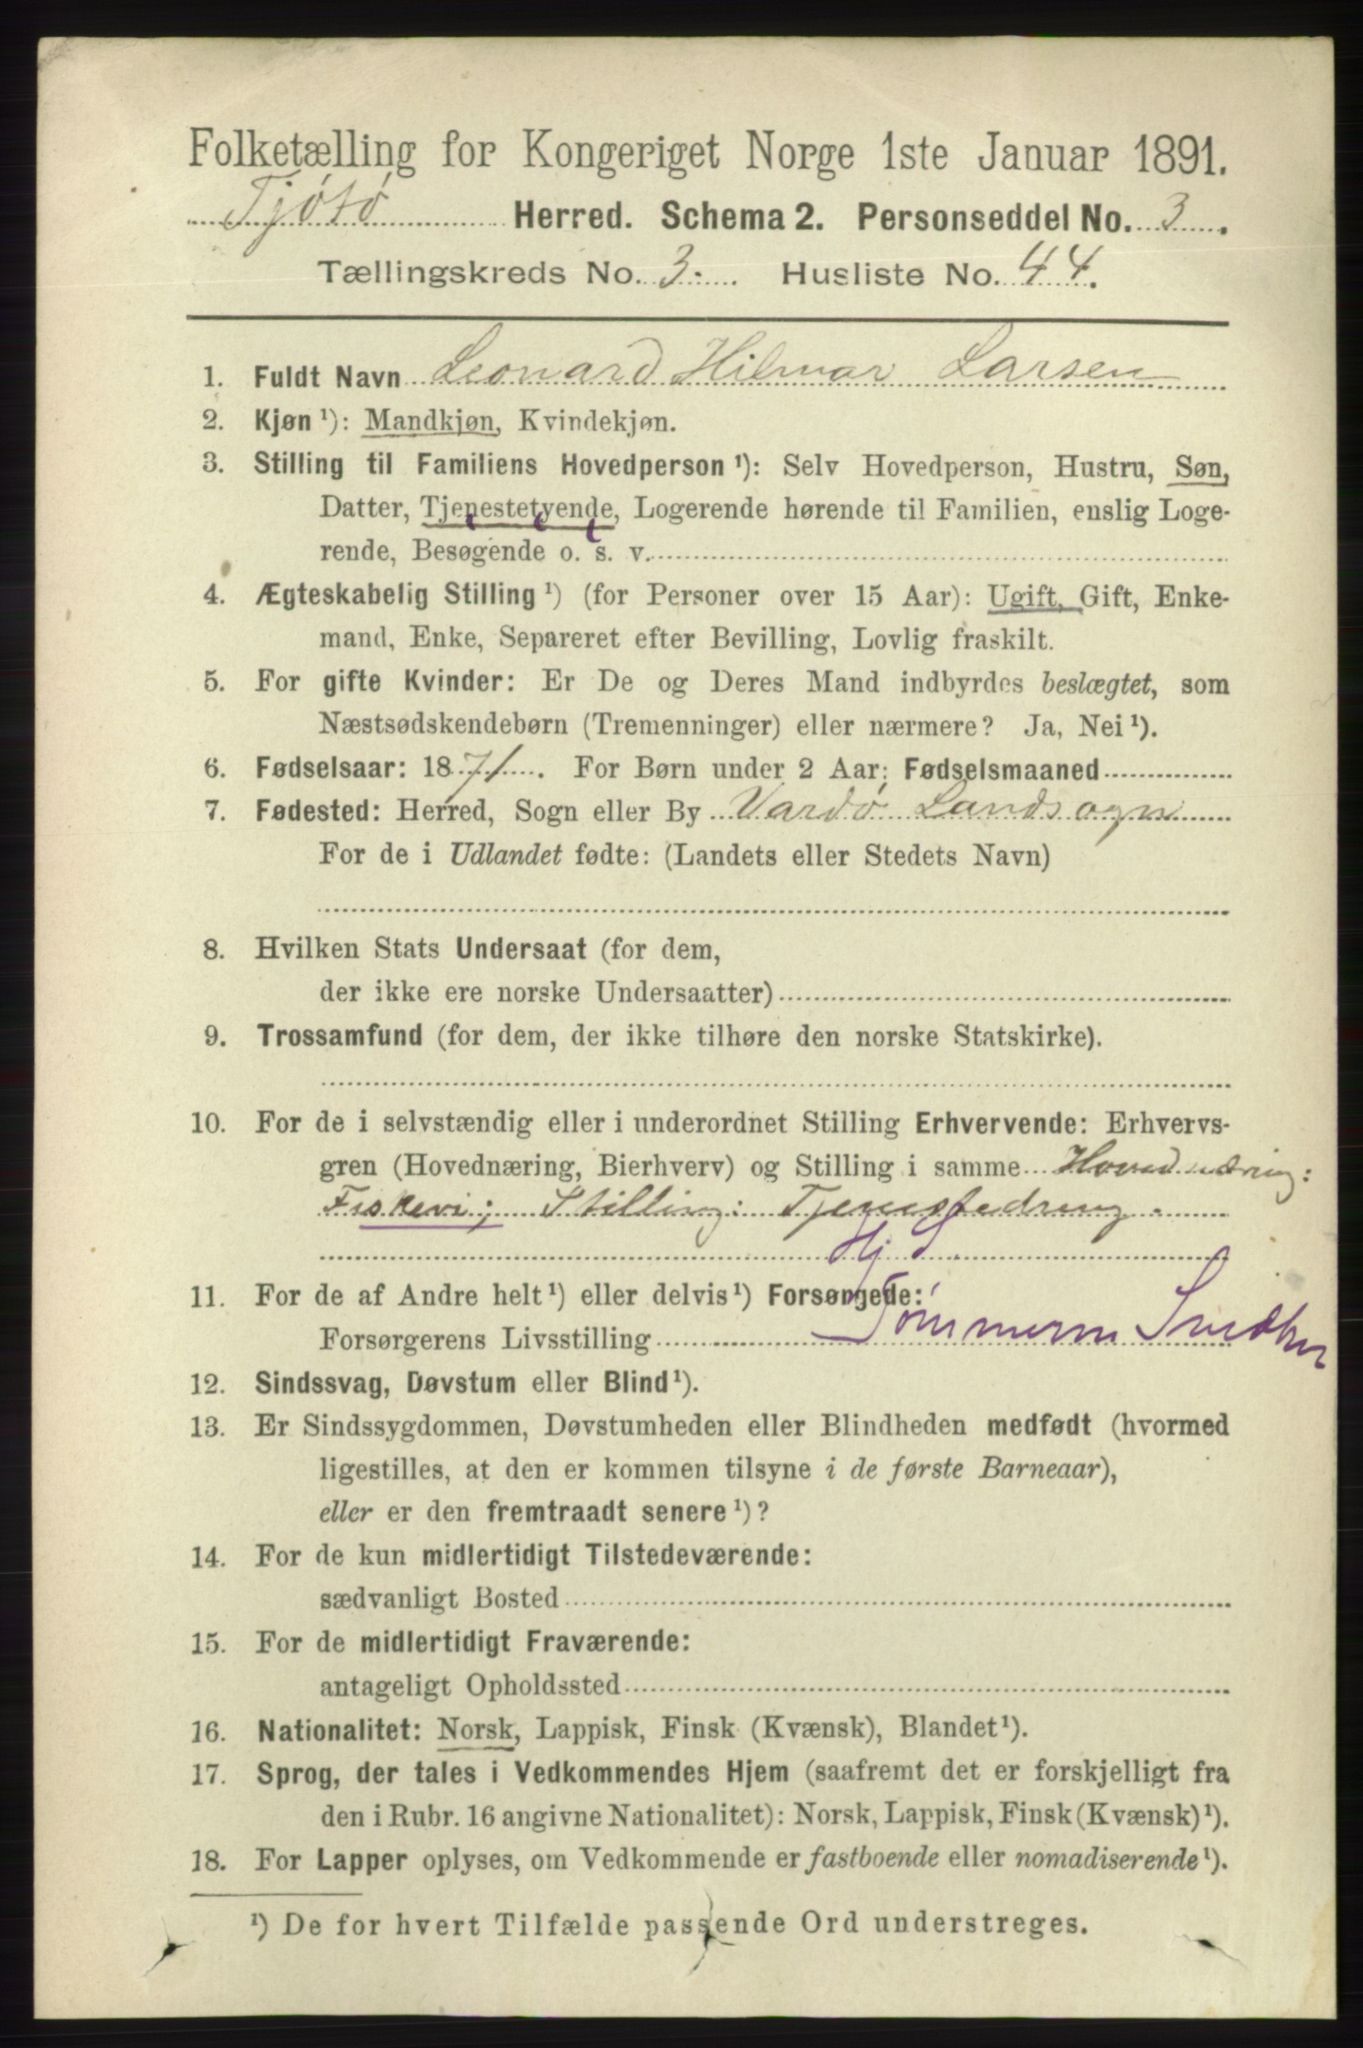 Folketælling for Kongeriget Norge 1ste Januar 1891.
Tjøtø Herred. Schema 2. Personseddel No. 3.
Tællingskreds No. 3. Husliste No. 44.
1. Fuldt Navn Leonard Hilmar Larsen
2. Kjøn ¹): Mandkjøn, Kvindekjøn.
3. Stilling til Familiens Hovedperson ¹): Selv Hovedperson, Hustru, Søn,
Datter, Tjenestetyende, Logerende hørende til Familien, enslig Loge-
rende, Besøgende o. s. v.
4. Ægteskabelig Stilling ¹) (for Personer over 15 Aar): Ugift, Gift, Enke-
mand, Enke, Separeret efter Bevilling, Lovlig fraskilt.
5. For gifte Kvinder: Er De og Deres Mand indbyrdes beslægtet, som
Næstsødskendebørn (Tremenninger) eller nærmere? Ja, Nei ¹).
6. Fødselsaar: 1871. For Børn under 2 Aar: Fødselsmaaned
7. Fødested: Herred, Sogn eller By Vardø Landsogn
For de i Udlandet fødte: (Landets eller Stedets Navn)
8. Hvilken Stats Undersaat (for dem,
der ikke ere norske Undersaatter)
9. Trossamfund (for dem, der ikke tilhøre den norske Statskirke).
10. For de i selvstændig eller i underordnet Stilling Erhvervende: Erhvervs-
gren (Hovednæring, Bierhverv) og Stilling i samme Hovednæring:
Fiskeri; Stilling: Tjenestedreng.
Hj S.
11. For de af Andre helt ¹) eller delvis ¹) Forsørgede:
Forsørgerens Livsstilling
12. Sindssvag, Døvstum eller Blind ¹).
13. Er Sindssygdommen, Døvstumheden eller Blindheden medfødt (hvormed
ligestilles, at den er kommen tilsyne i de første Barneaar),
eller er den fremtraadt senere ¹)?
14. For de kun midlertidigt Tilstedeværende:
sædvanligt Bosted
15. For de midlertidigt Fraværende:
antageligt Opholdssted
16. Nationalitet: Norsk, Lappisk, Finsk (Kvænsk), Blandet ¹).
17. Sprog, der tales i Vedkommendes Hjem (saafremt det er forskjelligt fra
den i Rubr. 16 angivne Nationalitet): Norsk, Lappisk, Finsk (Kvænsk) ¹).
18. For Lapper oplyses, om Vedkommende er fastboende eller nomadiserende ¹).
¹) De for hvert Tilfælde passende Ord understreges.